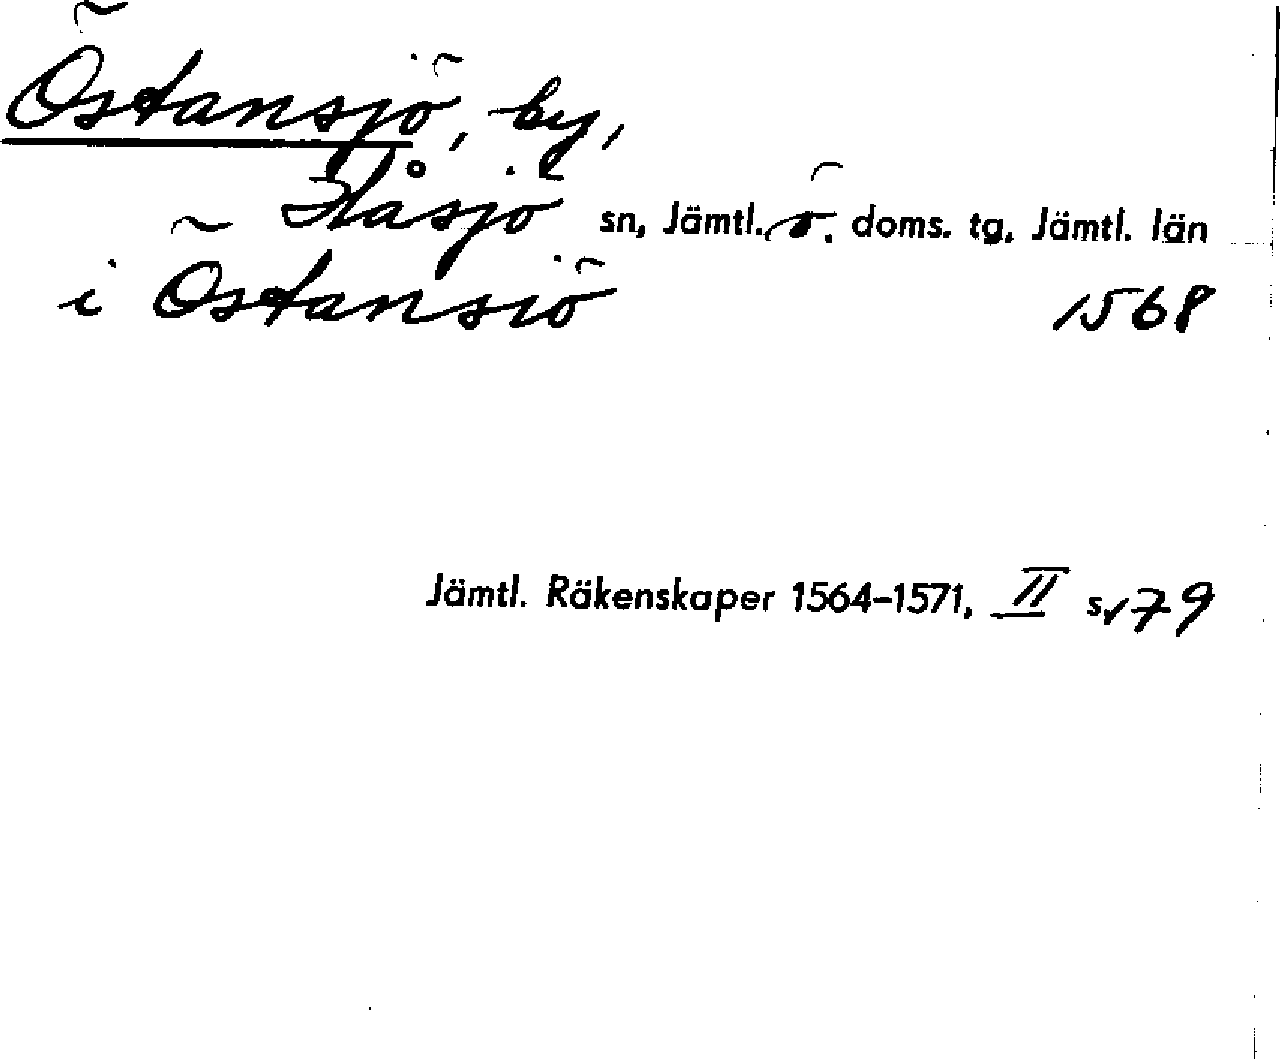 Östansjö, by,
Håsjö sn, Jämtl. ö. doms. tg, Jämtl. län
i Östansiö 1568
Jämtl. Räkenskaper 1564-1571, II s. 79